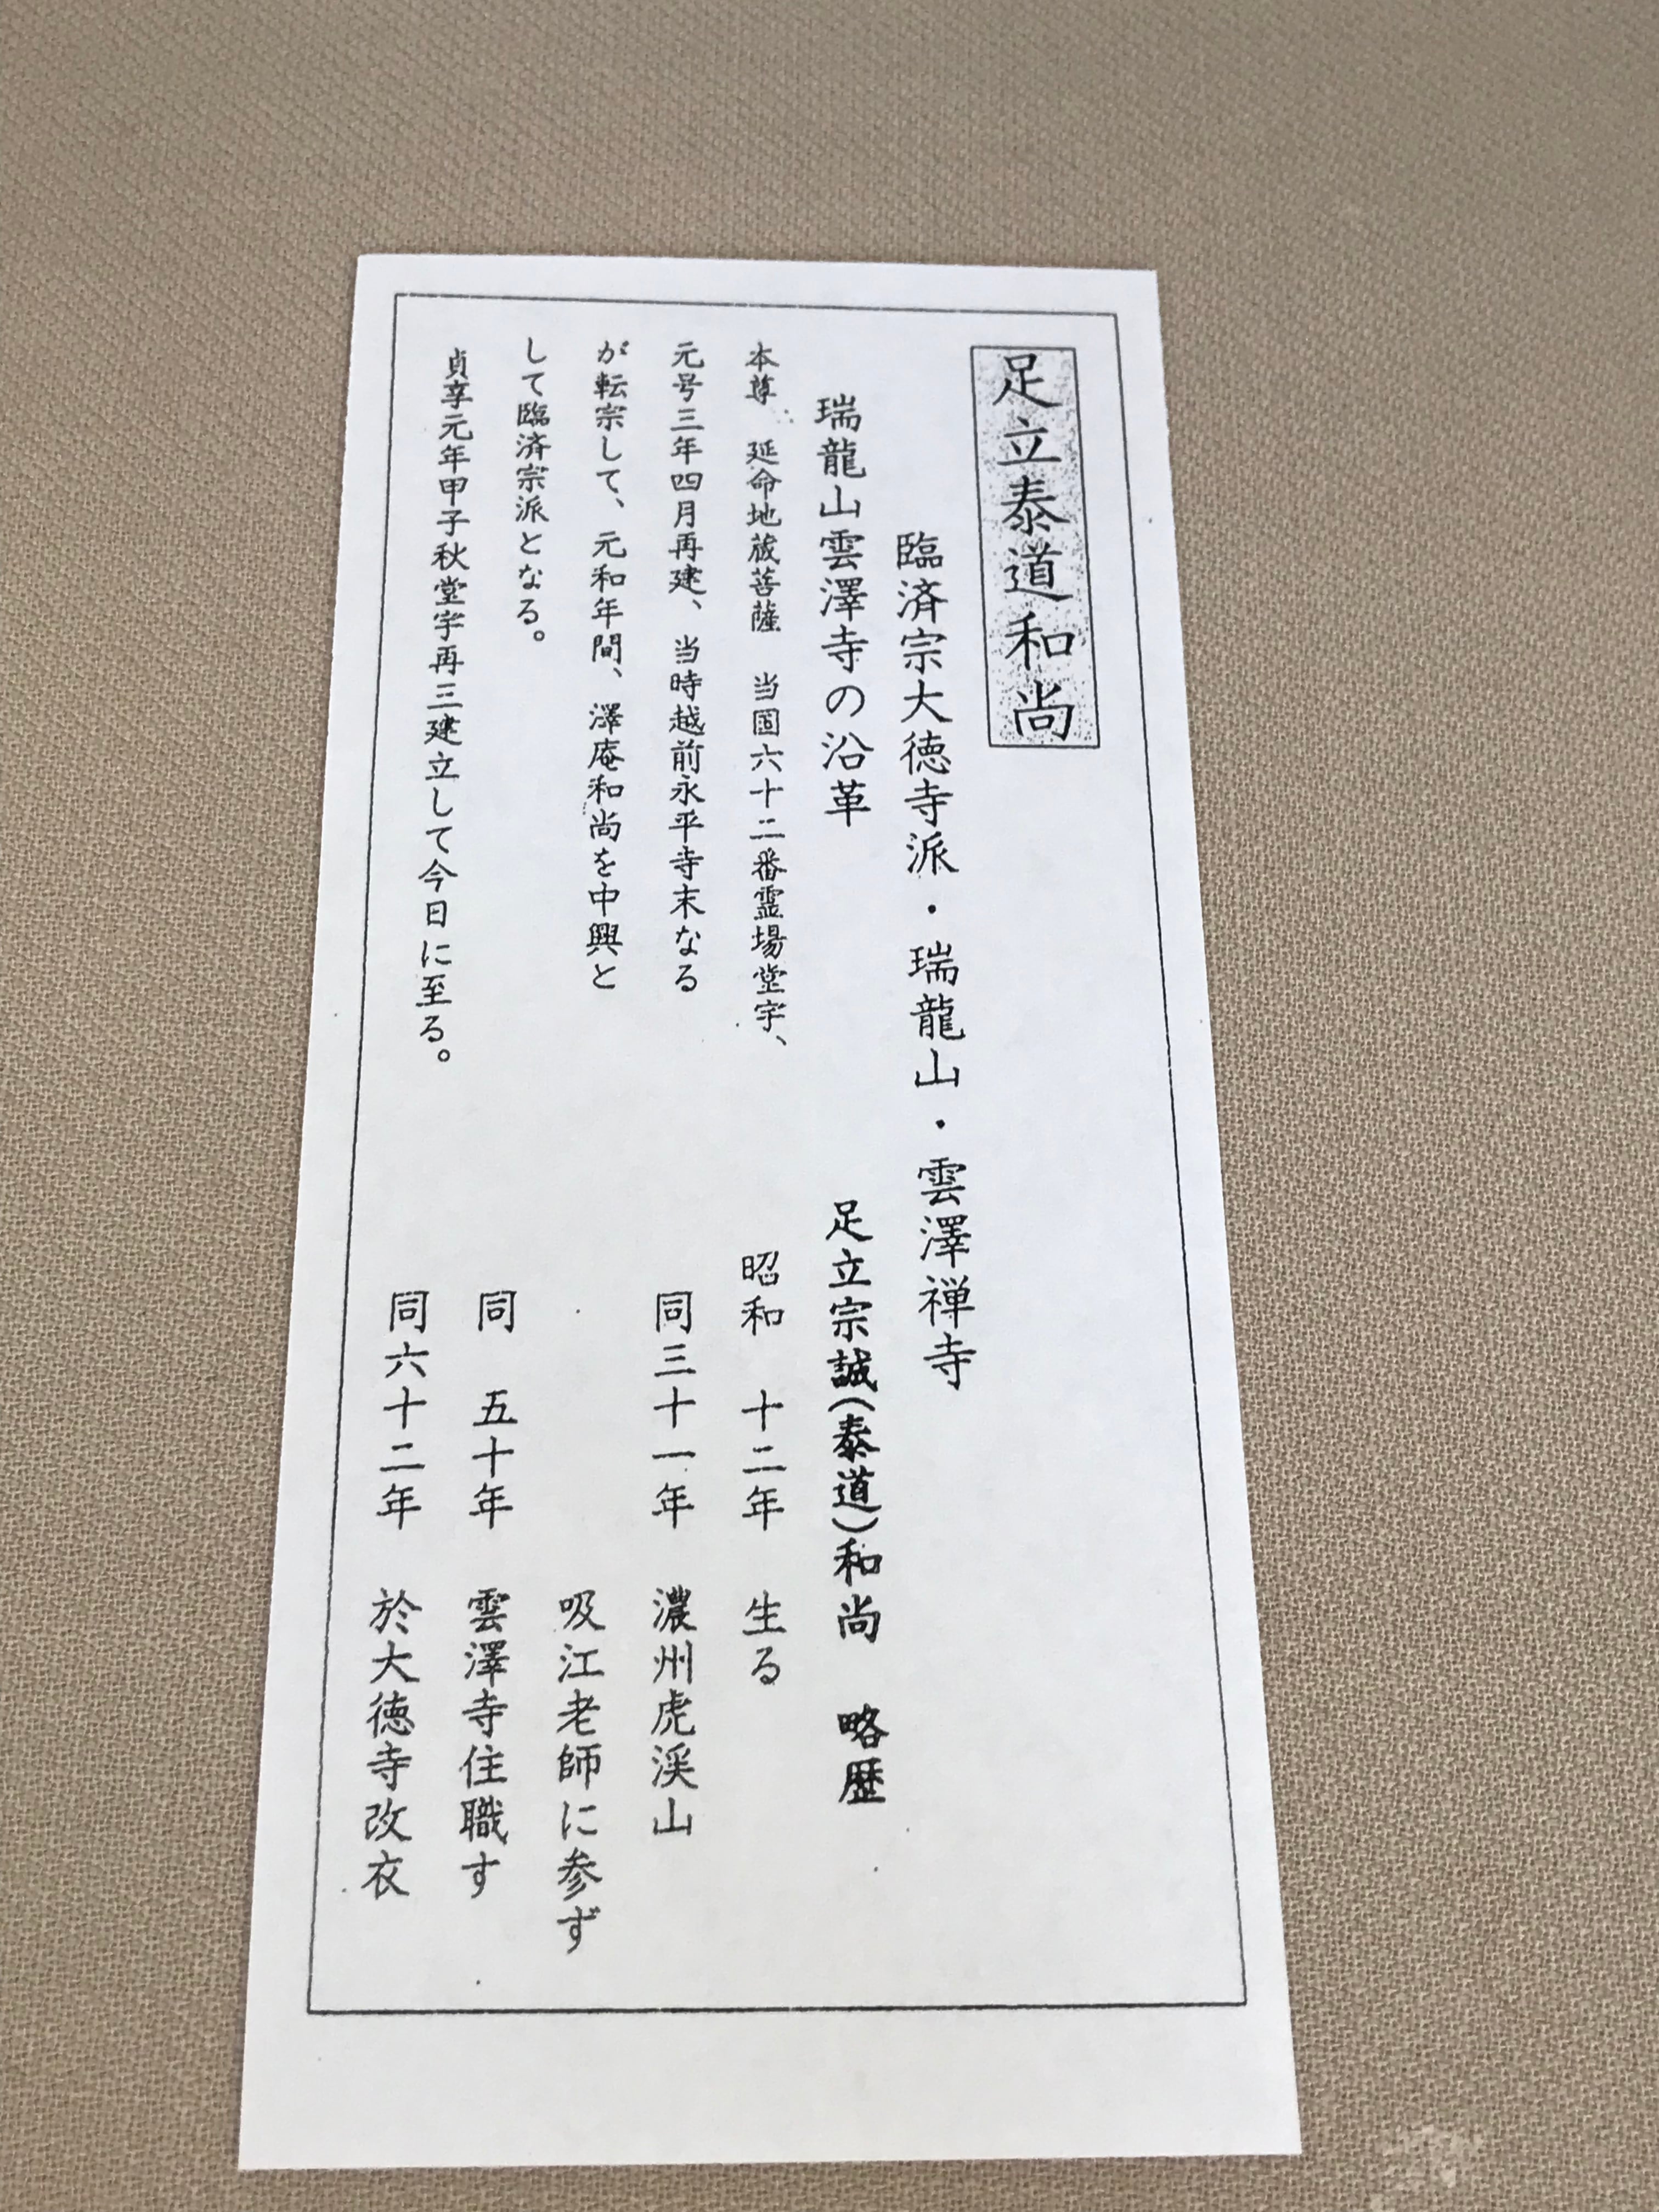 足立泰道和尚
臨済宗大徳寺派・瑞龍山・雲澤禅寺
瑞龍山雲澤寺の沿革
本尊 延命地蔵菩薩 当国六十二番霊場堂宇、
元号三年四月再建、当時越前永平寺末なる
が転宗して、元和年間、澤庵和尚を中興と
して臨済宗派となる。
貞享元年甲子秋堂宇再三建立して今日に至る。
足立宗誠(泰道)和尚 略歴
昭和 十二年 生る
同三十一年 濃州虎渓山
吸江老師に参ず
同 五十年 雲澤寺住職す
同六十二年 於大徳寺改衣